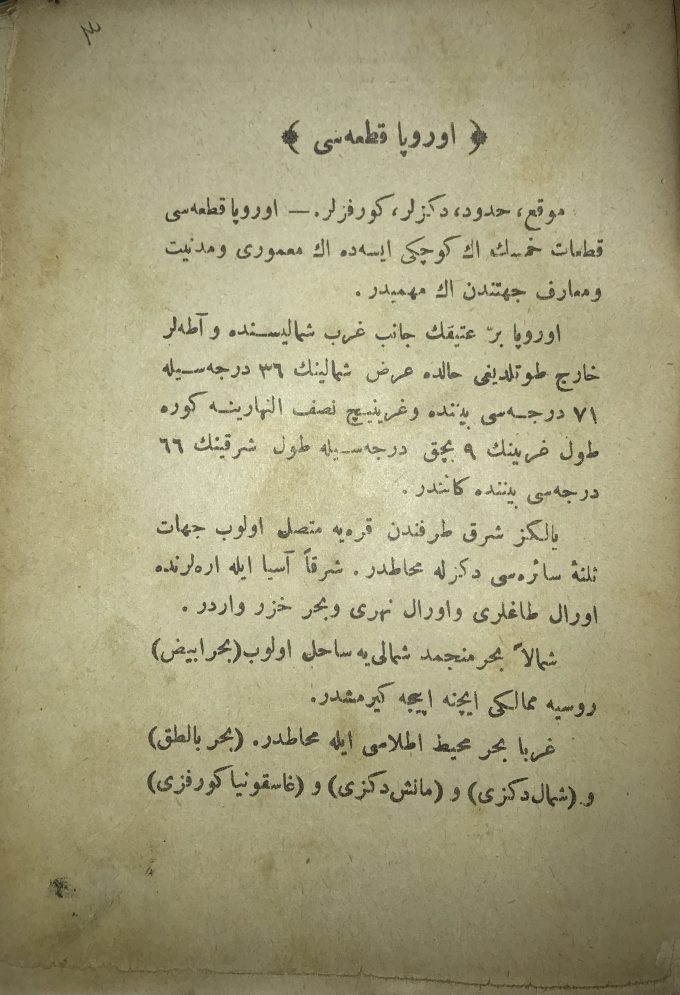 ٣
﴿ اوروپا قطعه‌سی ﴾
موقع، حدود، دكزلر، كورفزلر. — اوروپا قطعه‌سی
قطعات خمسه‌نك اك كوچكی ایسه‌ده اك معموری ومدنیت
ومعارف جهتندن اك مهمیدر .
اوروپا برّ عتیقك جانب غرب شمالیسنده و آطه‌لر
خارج طوتلدیغی حالده عرض شمالینك ٣٦ درجه‌سیله
٧١ درجه‌سی بیننده وغرینیچ نصف النهارینه كوره
طول غربینك ٩ بچق درجه‌سیله طول شرقینك ٦٦
درجه‌سی بیننده كائندر .
یالكز شرق طرفندن قره‌یه متصل اولوب جهات
ثلثهٔ سائره‌سی دكزله محاطدر . شرقاً آسیا ایله اره‌لرنده
اورال طاغلری واورال نهری وبحر خزر واردر .
شمالاً بحر منجمد شمالی‌یه ساحل اولوب (بحر ابیض)
روسیه ممالكی ایچنه اییجه كیرمشدر.
غربا بحر محیط اطلاسی ایله محاطدر. (بحر بالطق)
و (شمال دكزی) و (مانش دكزی) و (غاسقونیا كورفزی)